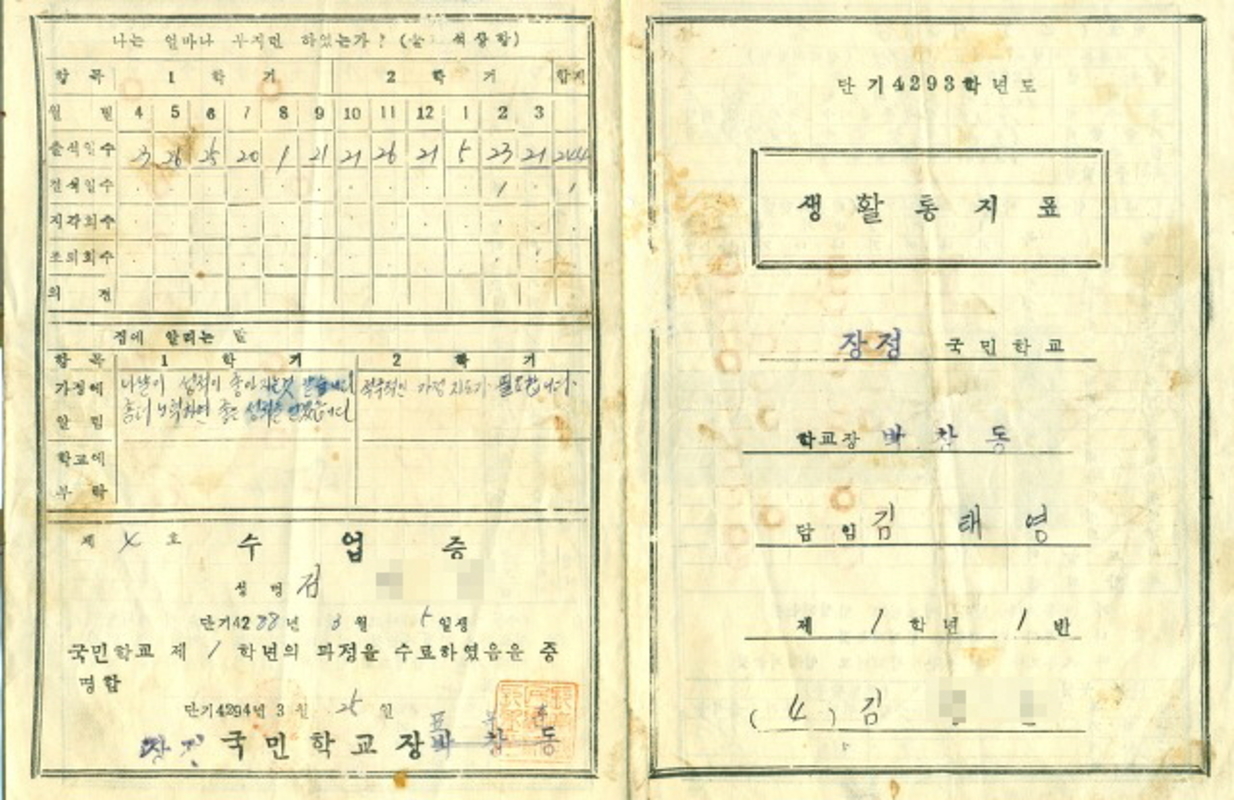 나는 얼마나 부지런 하였는가? ( 석상황)
항 목 1 학 기 2 학 기 합계
월 별 4 5 6 7 8 9 10 11 12 1 2 3
출석일수 3 26 25 20 1 21 21 26 21 5 23 21 244
결석일수 1 1
지각회수
조퇴회수
의 견
집에 알리는 말
항 목 1 학 기 2 학 기
가정에 알 림
나날이 성적이 좋아지는것 같습니다
좀더 노력하면 좋은 성적을 얻겠습니다
적극적인 가정 지도가 필요합니다.
학교에 부 탁
제 4 호 수 업 증
성 명 김
단기4288년 3월 5일생
국민학교 제 1 학년의 과정을 수료하였음을 증
명함
단기4294년 3월 25일
장정 국민학교장 박 창 동
단기4293학년도
생 활 통 지 표
장정 국민학교
학교장 박 창 동
담 임 김 태 영
제 1 학년 1 반
(4) 김